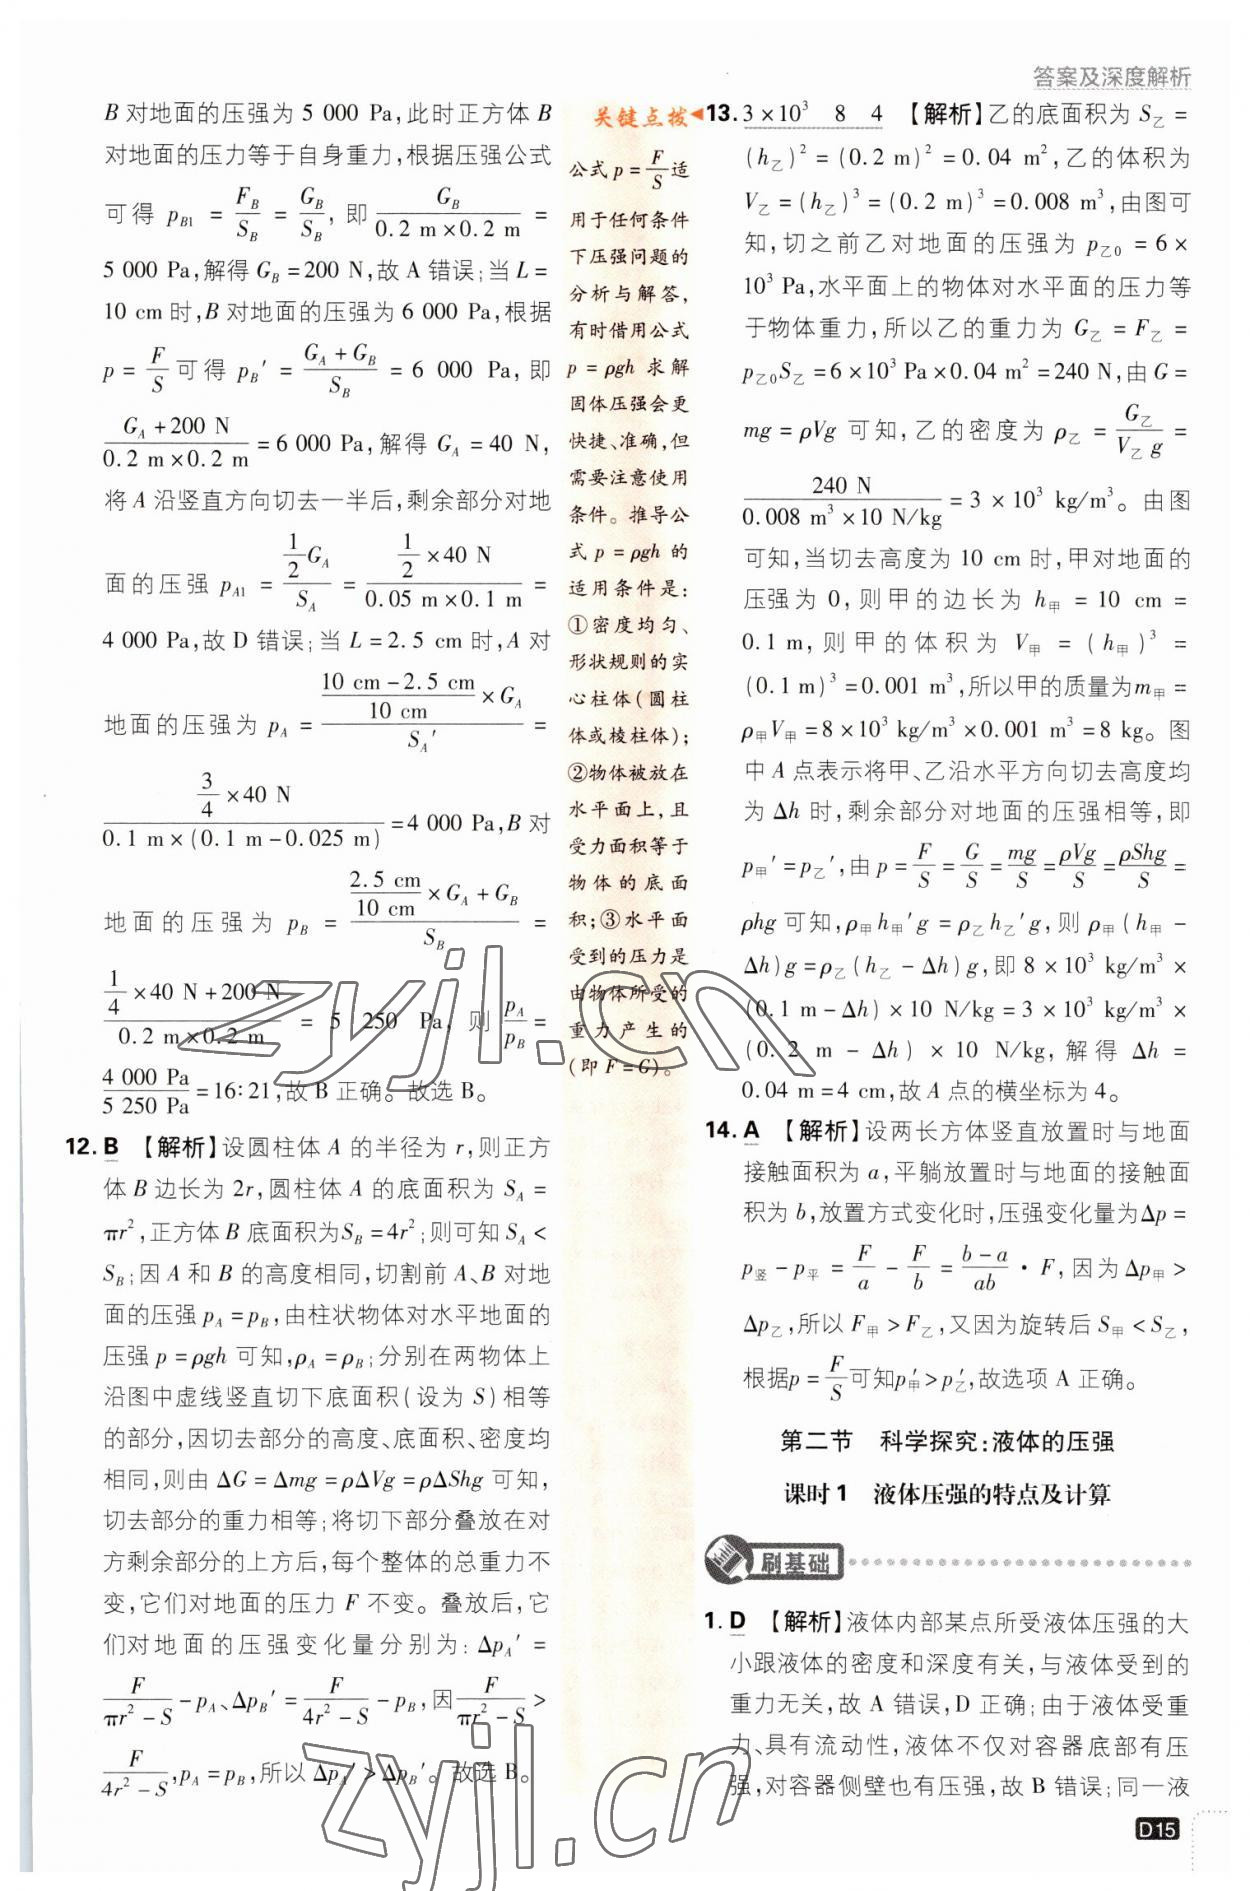 答案及深度解析
B 对地面的压强为 5 000 Pa,此时正方体 B
对地面的压力等于自身重力,根据压强公式
可得 p_B1 = F_B/S_B = G_B/S_B, 即 G_B/(0.2 m×0.2 m) =
5 000 Pa,解得 G_B = 200 N,故 A 错误;当 L =
10 cm 时,B 对地面的压强为 6 000 Pa,根据
p = F/S 可得 p_B′ = (G_A + G_B)/S_B = 6 000 Pa, 即
(G_A + 200 N)/(0.2 m×0.2 m) = 6 000 Pa,解得 G_A = 40 N,
将 A 沿竖直方向切去一半后,剩余部分对地
面的压强 p_A1 = (1/2 G_A)/S_A = (1/2 ×40 N)/(0.05 m×0.1 m) =
4 000 Pa,故 D 错误;当 L = 2.5 cm 时,A 对
地面的压强为 p_A = ((10 cm - 2.5 cm)/10 cm × G_A)/S_A′ =
(3/4 ×40 N)/(0.1 m×(0.1 m-0.025 m)) = 4 000 Pa,B 对
地面的压强为 p_B = (2.5 cm/10 cm × G_A + G_B)/S_B =
(1/4 ×40 N+200 N)/(0.2 m×0.2 m) = 5 250 Pa, 则 p_A/p_B =
4 000 Pa/5 250 Pa = 16∶21,故 B 正确。故选 B。
12. B 【解析】设圆柱体 A 的半径为 r,则正方
体 B 边长为 2r,圆柱体 A 的底面积为 S_A =
πr²,正方体 B 底面积为S_B = 4r²;则可知 S_A <
S_B;因 A 和 B 的高度相同,切割前 A、B 对地
面的压强 p_A = p_B,由柱状物体对水平地面的
压强 p = ρgh 可知,ρ_A = ρ_B;分别在两物体上
沿图中虚线竖直切下底面积(设为 S)相等
的部分,因切去部分的高度、底面积、密度均
相同,则由 ΔG = Δmg = ρΔVg = ρΔShg 可知,
切去部分的重力相等;将切下部分叠放在对
方剩余部分的上方后,每个整体的总重力不
变,它们对地面的压力 F 不变。叠放后,它
们对地面的压强变化量分别为:Δp_A′ =
F/(πr² - S) - p_A、Δp_B′ = F/(4r² - S) - p_B, 因 F/(πr² - S) >
F/(4r² - S),p_A = p_B,所以 Δp_A′ > Δp_B′。故选 B。
关键点拨
公式 p = F/S 适
用于任何条件
下压强问题的
分析与解答,
有时借用公式
p = ρgh 求解
固体压强会更
快捷、准确,但
需要注意使用
条件。推导公
式 p = ρgh 的
适用条件是:
①密度均匀、
形状规则的实
心柱体(圆柱
体或棱柱体);
②物体被放在
水平面上,且
受力面积等于
物体的底面
积;③水平面
受到的压力是
由物体所受的
重力产生的
(即 F = G)。
13. 3×10³ 8 4 【解析】乙的底面积为 S_乙 =
(h_乙)² = (0.2 m)² = 0.04 m²,乙的体积为
V_乙 = (h_乙)³ = (0.2 m)³ = 0.008 m³,由图可
知,切之前乙对地面的压强为 p_乙0 = 6 ×
10³ Pa,水平面上的物体对水平面的压力等
于物体重力,所以乙的重力为 G_乙 = F_乙 =
p_乙0S_乙 = 6×10³ Pa×0.04 m² = 240 N,由 G =
mg = ρVg 可知,乙的密度为 ρ_乙 = G_乙/(V_乙 g) =
240 N/(0.008 m³×10 N/kg) = 3 × 10³ kg/m³。由图
可知,当切去高度为 10 cm 时,甲对地面的
压强为 0,则甲的边长为 h_甲 = 10 cm =
0.1 m,则甲的体积为 V_甲 = (h_甲)³ =
(0.1 m)³ = 0.001 m³,所以甲的质量为m_甲 =
ρ_甲V_甲 = 8×10³ kg/m³×0.001 m³ = 8 kg。图
中 A 点表示将甲、乙沿水平方向切去高度均
为 Δh 时,剩余部分对地面的压强相等,即
p_甲′ = p_乙′,由 p = F/S = G/S = mg/S = ρVg/S = ρShg/S =
ρhg 可知,ρ_甲 h_甲′g = ρ_乙 h_乙′g,则 ρ_甲(h_甲 -
Δh)g = ρ_乙(h_乙 - Δh)g,即 8 × 10³ kg/m³ ×
(0.1 m - Δh) × 10 N/kg = 3 × 10³ kg/m³ ×
(0.2 m - Δh) × 10 N/kg, 解得 Δh =
0.04 m = 4 cm,故 A 点的横坐标为 4。
14. A 【解析】设两长方体竖直放置时与地面
接触面积为 a,平躺放置时与地面的接触面
积为 b,放置方式变化时,压强变化量为Δp =
p_竖 - p_平 = F/a - F/b = (b - a)/ab · F, 因为 Δp_甲 >
Δp_乙,所以 F_甲 > F_乙,又因为旋转后 S_甲 < S_乙,
根据p = F/S 可知p′_甲 > p′_乙,故选项 A 正确。
第二节 科学探究:液体的压强
课时1 液体压强的特点及计算
刷基础
1. D 【解析】液体内部某点所受液体压强的大
小跟液体的密度和深度有关,与液体受到的
重力无关,故 A 错误,D 正确;由于液体受重
力、具有流动性,液体不仅对容器底部有压
强,对容器侧壁也有压强,故 B 错误;同一液
D15
zyjl.cn
zyjl.cn